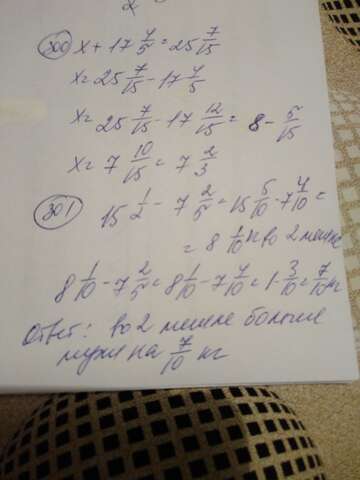 2
300 x + 17 4/5 = 25 7/15
x = 25 7/15 - 17 4/5
x = 25 7/15 - 17 12/15 = 8 - 5/15
x = 7 10/15 = 7 2/3
301 15 1/2 - 7 2/5 = 15 5/10 - 7 4/10 =
= 8 1/10 во 2 мешке
8 1/10 - 7 2/5 = 8 1/10 - 7 4/10 = 1 - 3/10 = 7/10 кг
Ответ: во 2 мешке больше
муки на 7/10 кг